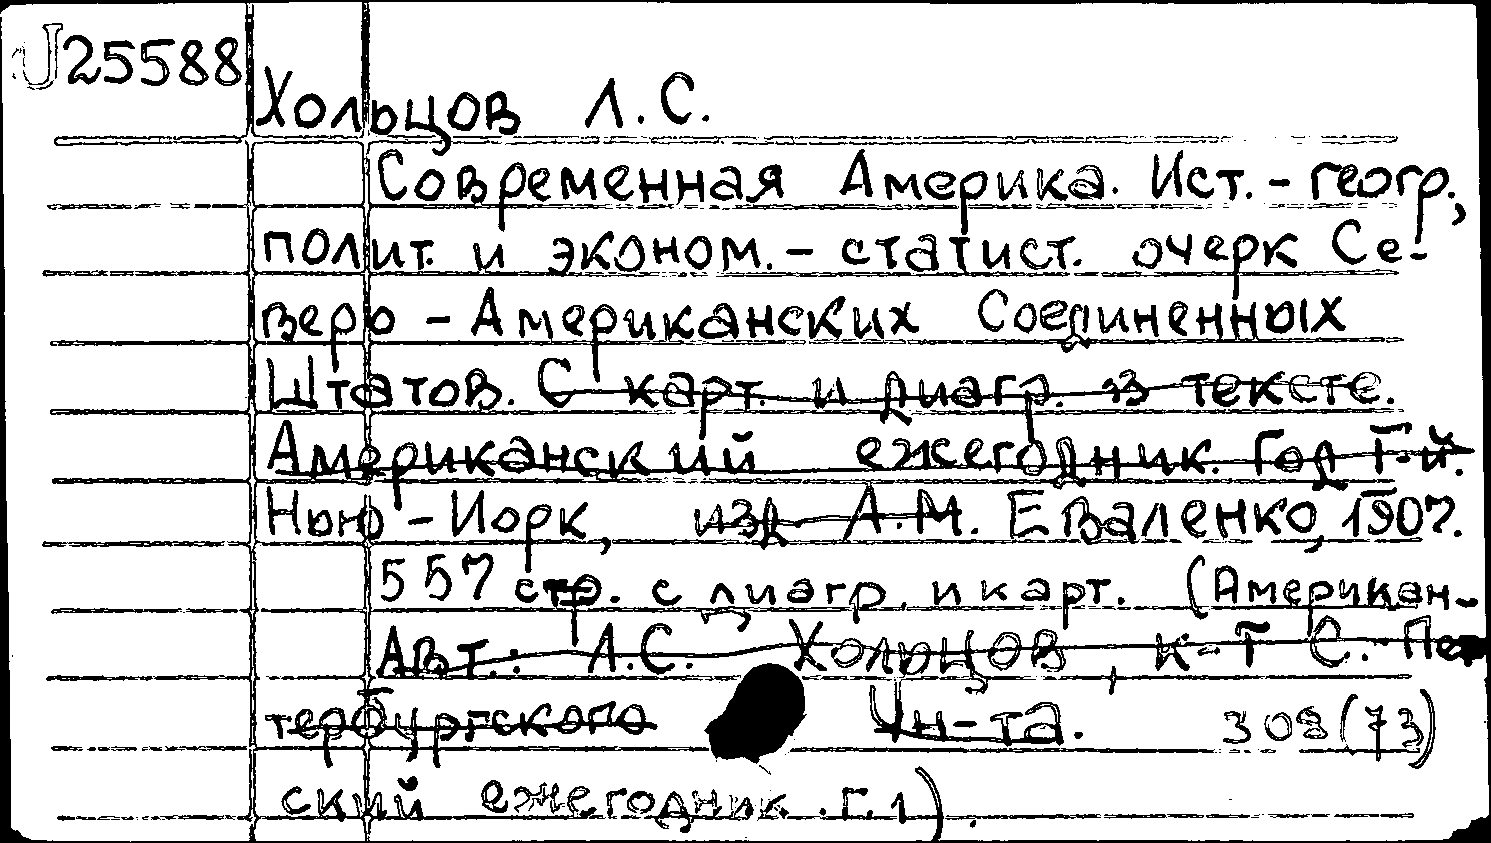 U25588
Хольцов Л.С.
Современная Америка. Ист.-геогр.,
полит. и эконом.-статист. очерк Се-
веро-Американских Соединенных
Штатов. С карт. и диагр. в тексте.
Американский ежегодник. Год I-й.
Нью-Йорк, изд. А.М. Еваленко, 1907.
557 стр. с диагр. и карт. (Американ-
Авт.: Л.С. Хольцов, к-т С.-Пе
тербургского Ун-та. 308(73)
ский ежегодник. г.1).